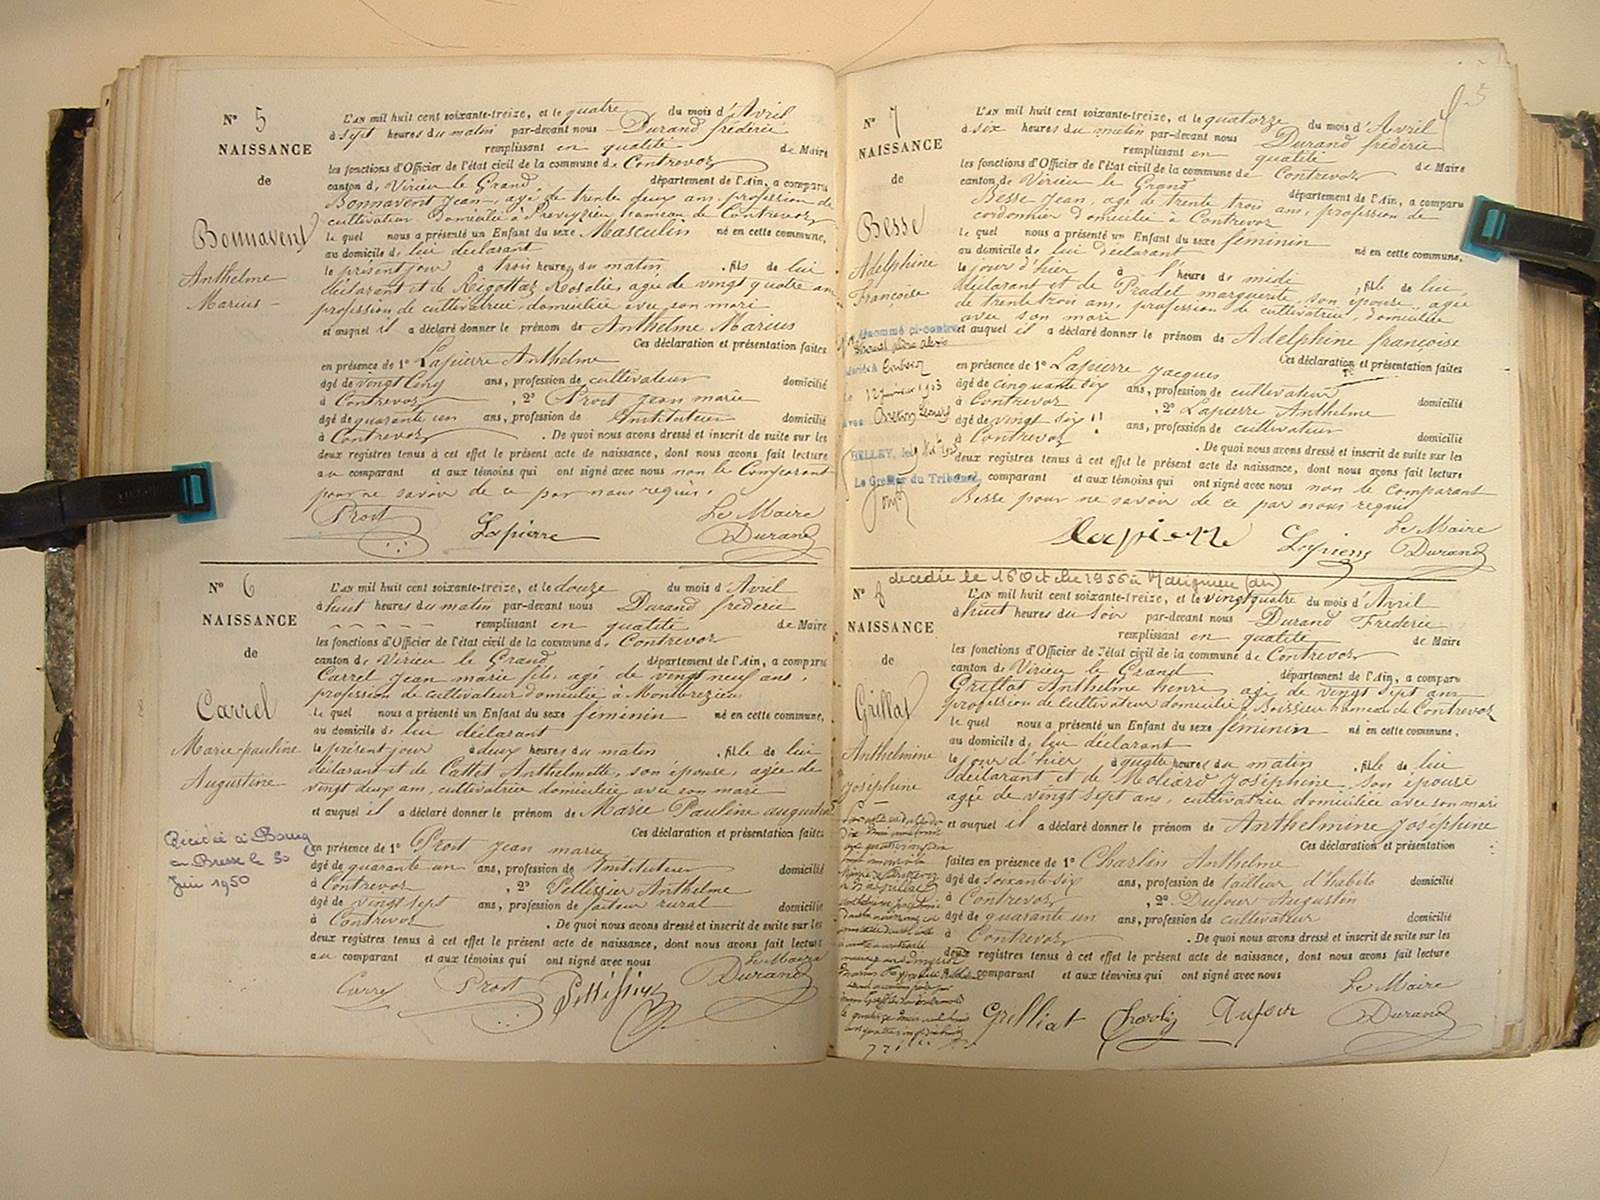 Nº 5
NAISSANCE
de
Bonnavent
Anthelme
Marius
L'AN mil huit cent soixante-treize, et le quatre du mois d'Avril
à sept heures du matin par-devant nous Durand fréderic
remplissant en qualité de Maire
les fonctions d'Officier de l'état civil de la commune de Contrevoz
canton de Virieu le Grand département de l'Ain, a comparu
Bonnavent Jean, agé de trente deux ans, profession de
cultivateur domicilié à Preveyzieu hameau de Contrevoz
le quel nous a présenté un Enfant du sexe Masculin né en cette commune,
au domicile de lui déclarant
le présent jour à trois heures du matin, fils de lui
déclarant et de Rigottaz Rosalie, agée de vingt quatre ans
profession de cultivatrice domiciliée avec son mari
et auquel il a déclaré donner le prénom de Anthelme Marius
Ces déclaration et présentation faites
en présence de 1º Lapierre Anthelme
âgé de vingt cinq ans, profession de cultivateur domicilié
à Contrevoz, 2º Prost Jean marie
âgé de quarante un ans, profession de Instituteur domicilié
à Contrevoz. De quoi nous avons dressé et inscrit de suite sur les
deux registres tenus à cet effet le présent acte de naissance, dont nous avons fait lecture
au comparant et aux témoins qui ont signé avec nous non le Comparant
pour ne savoir de ce par nous requis.
Prost Lapierre Le Maire
Durand
Nº 6
NAISSANCE
de
Carrel
Marie pauline
Augustine
Décédée à Bourg
en Bresse le 30
Juin 1950
L'AN mil huit cent soixante-treize, et le douze du mois d'Avril
à huit heures du matin par-devant nous Durand fréderic
remplissant en qualité de Maire
les fonctions d'Officier de l'état civil de la commune de Contrevoz
canton de Virieu le Grand département de l'Ain, a comparu
Carrel Jean marie fils, agé de vingt neuf ans,
profession de cultivateur domicilié à Montbrezieu
le quel nous a présenté un Enfant du sexe féminin né en cette commune,
au domicile de lui déclarant
le présent jour à deux heures du matin, fille de lui
déclarant et de Cattet Anthelmette, son épouse, agée de
vingt deux ans, cultivatrice domiciliée avec son mari
et auquel il a déclaré donner le prénom de Marie Pauline augustine
Ces déclaration et présentation faites
en présence de 1º Prost Jean marie
âgé de quarante un ans, profession de Instituteur domicilié
à Contrevoz, 2º Pellissier Anthelme
âgé de vingt sept ans, profession de facteur rural domicilié
à Contrevoz. De quoi nous avons dressé et inscrit de suite sur les
deux registres tenus à cet effet le présent acte de naissance, dont nous avons fait lecture
au comparant et aux témoins qui ont signé avec nous
Carrel Prost Pellissier Le Maire
Durand
Nº 7
NAISSANCE
de
Besse
Adelphine
Françoise
BELLEY, le
Le Greffier du Tribunal,
L'AN mil huit cent soixante-treize, et le quatorze du mois d'Avril
à six heures du matin par-devant nous Durand fréderic
remplissant en qualité de Maire
les fonctions d'Officier de l'état civil de la commune de Contrevoz
canton de Virieu le Grand département de l'Ain, a comparu
Besse Jean, agé de trente trois ans, profession de
cordonnier domicilié à Contrevoz
le quel nous a présenté un Enfant du sexe féminin né en cette commune,
au domicile de lui déclarant
le jour d'hier à l'heure de midi, fille de lui,
déclarant et de Pradel marguerite, son épouse, agée
de trente trois ans, profession de cultivatrice, domiciliée
avec son mari
et auquel il a déclaré donner le prénom de Adelphine françoise
Ces déclaration et présentation faites
en présence de 1º Lapierre Jacques
âgé de cinquante six ans, profession de cultivateur domicilié
à Contrevoz, 2º Lapierre Anthelme
âgé de vingt six ans, profession de cultivateur domicilié
à Contrevoz. De quoi nous avons dressé et inscrit de suite sur les
deux registres tenus à cet effet le présent acte de naissance, dont nous avons fait lecture
comparant et aux témoins qui ont signé avec nous non le Comparant
Besse pour ne savoir de ce par nous requis
lapierre Lapierre Le Maire
Durand
décédée le 16 Octobre 1956 à (Ain)
Nº 8
NAISSANCE
de
Grillat
Anthelmine
Joséphine
L'AN mil huit cent soixante-treize, et le vingt quatre du mois d'Avril
à huit heures du soir par-devant nous Durand Fréderic
remplissant en qualité de Maire
les fonctions d'Officier de l'état civil de la commune de Contrevoz
canton de Virieu le Grand département de l'Ain, a comparu
Grillat Anthelme henri, agé de vingt sept ans
profession de cultivateur domicilié à Boissieu hameau de Contrevoz
le quel nous a présenté un Enfant du sexe féminin né en cette commune,
au domicile de lui déclarant
le jour d'hier à quatre heures du matin, fille de lui
déclarant et de Moliard Joséphine son épouse
agée de vingt sept ans, cultivatrice domiciliée avec son mari
et auquel il a déclaré donner le prénom de Anthelmine Joséphine
Ces déclaration et présentation
faites en présence de 1º Charlin Anthelme
âgé de soixante six ans, profession de tailleur d'habits domicilié
à Contrevoz, 2º Dufour Augustin
âgé de quarante un ans, profession de cultivateur domicilié
à Contrevoz. De quoi nous avons dressé et inscrit de suite sur les
deux registres tenus à cet effet le présent acte de naissance, dont nous avons fait lecture
comparant et aux témoins qui ont signé avec nous
Grilliat Charlin Dufour Le Maire
Durand